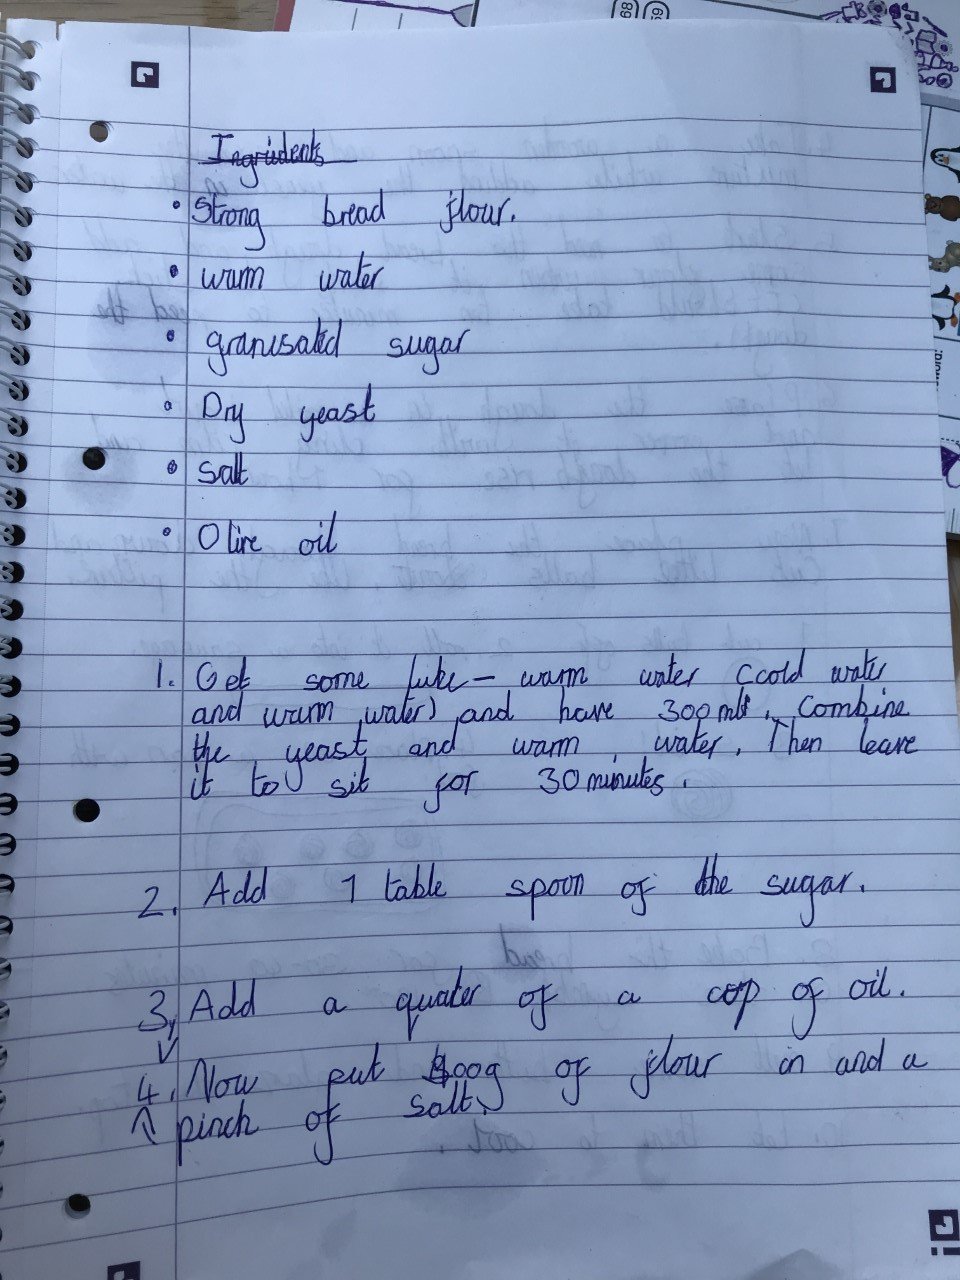 Ingriedents
• Strong bread flour.
• warm water
• granusated sugar
• Dry yeast
• salt
• Olive oil
1. Get some luke-warm water (cold water
and warm water) and have 300 mls. Combine
the yeast and warm water. Then leave
it to sit for 30 minutes.
2. Add 1 table spoon of the sugar.
3, Add a quater of a cup of oil.
4. Now put 500g of flour in and a
pinch of salt.